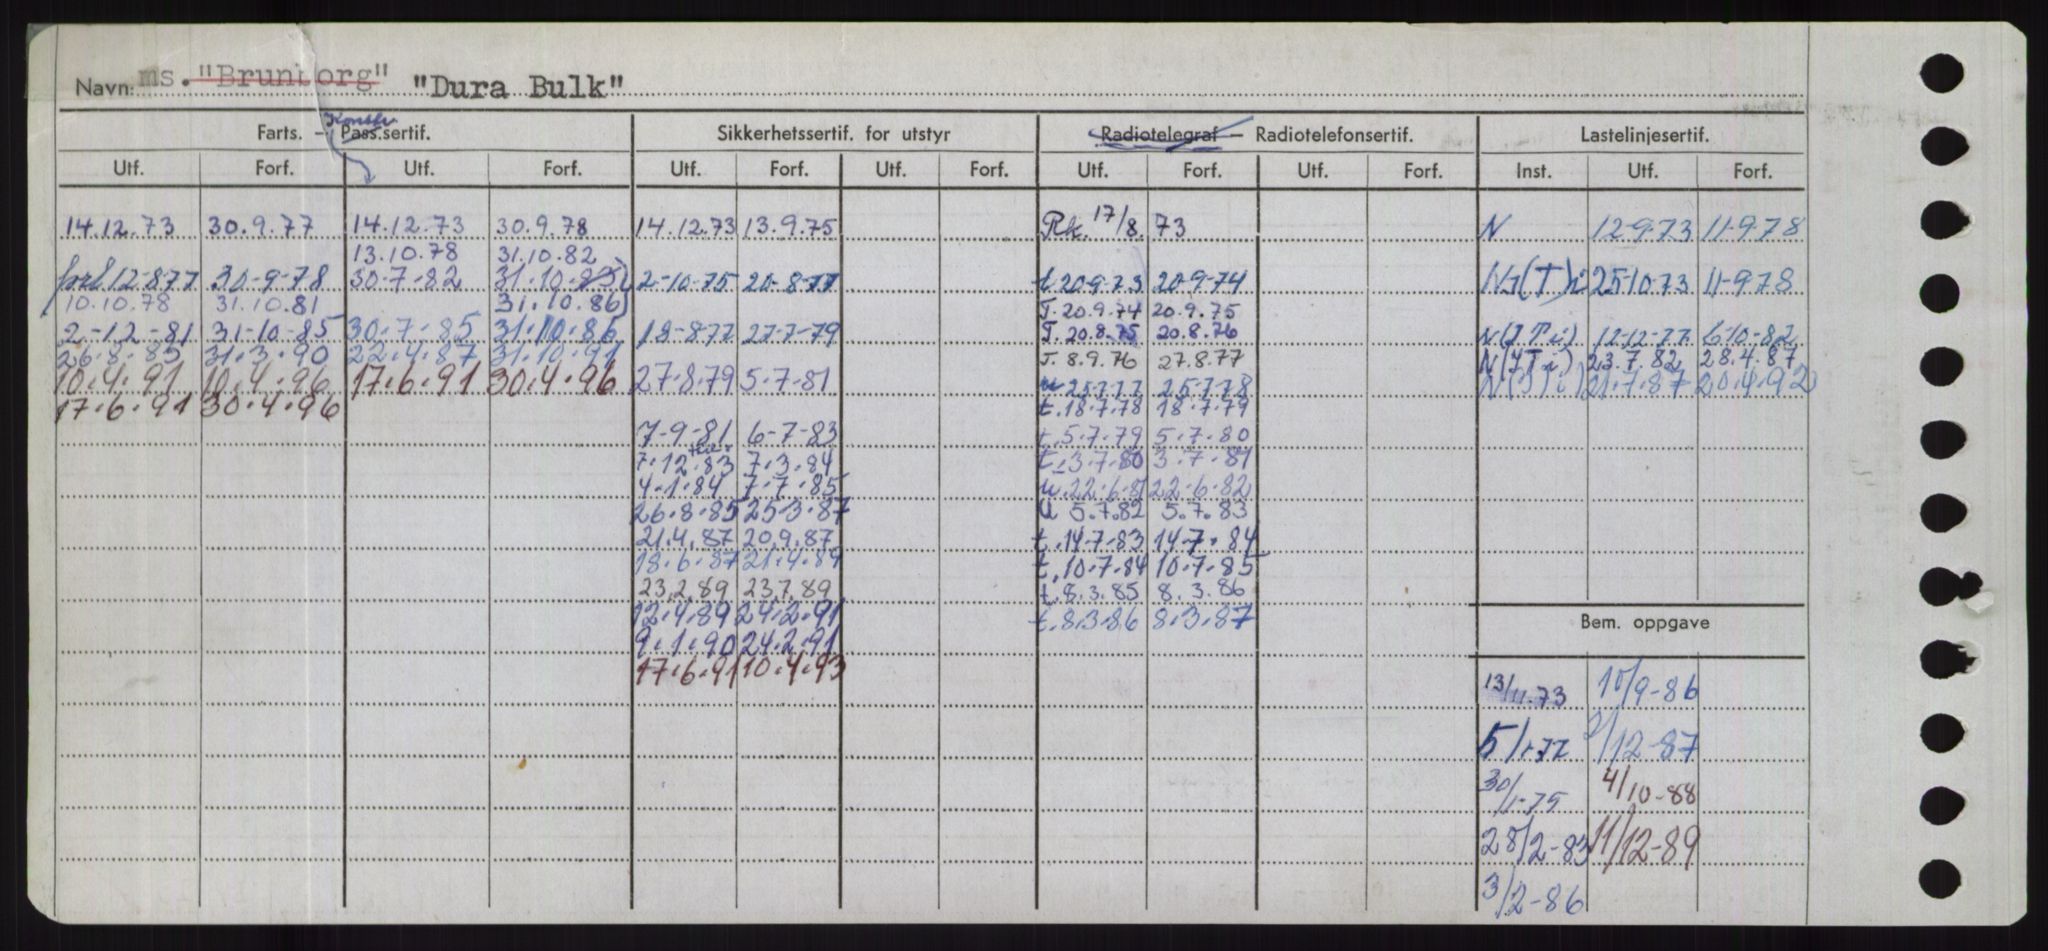 Navn: ms. "Brunborg" "Dura Bulk"
Konstr.
Farts. – Pass.sertif. Sikkerhetssertif. for utstyr Radiotelegraf – Radiotelefonsertif. Lastelinjesertif.
Utf. Forf. Utf. Forf. Utf. Forf. Utf. Forf. Utf. Forf. Utf. Forf. Inst. Utf. Forf.
14.12.73 30.9.77 14.12.73 30.9.78 14.12.73 13.9.75 Rk. 17/8. 73 N 12-9-73 11-9-78
13.10.78 31.10.82
forl 12-8-77 30-9-78 30-7-82 31-10-85 2-10-75 20-8-77 t 20-9-73 20-9-74 25-10-73 11-9-78
10.10.78 31.10.81 31.10.86 T. 20.9.74 20.9.75
2-12-81 31-10-85 30.7.85 31.10.86 18-8-77 27-7-79 T. 20.8.75 20.8.76 N(JTi) 12-12-77 6-10-82
26.8.85 31.3.90 22.4.87 31.10.91 T. 8.9.76 27.8.77 N(JTi) 23.7.82 28.4.87
10.4.91 10.4.96 17.6.91 30.4.96 27.8.79 5.7.81 u 25.7.77 25.7.78 21.7.87 20.4.92
17.6.91 30.4.96 t. 18.7.78 18.7.79
7-9-81 6-7-83 t. 5.7.79 5.7.80
7.12.83 7.3.84 t. 3.7.80 3.7.81
4.1.84 7.7.85 u. 22.6.81 22.6.82
26.8.85 25.3.87 U 5.7.82 5.7.83
21.4.87 20.9.87 t. 14.7.83 14.7.84
18.6.87 21.4.89 t. 10.7.84 10.7.85
23.2.89 23.7.89 t. 8.3.85 8.3.86
12.4.89 24.2.91 t. 8.3.86 8.3.87
Bem. oppgave
9.1.90 24.2.91
17.6.91 10.4.93
13/11.73 10/9-86
/12-87
30/1-75 4/10-88
28/2-83 11/12-89
3/2-86